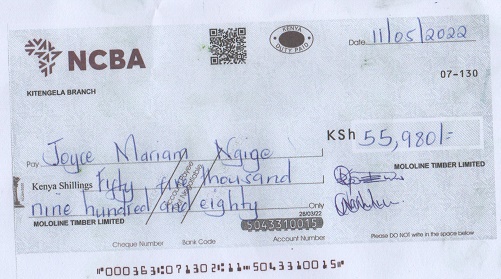 NCBA
KENYA
DUTY PAID
Date 11/05/2022
07-130
KITENGELA BRANCH
Pay Joyce Mariam Ngige
KSh 55,980/=
Kenya Shillings Fifty five thousand
nine hundred and eighty Only
MOLOLINE TIMBER LIMITED
MOLOLINE TIMBER LIMITED
28/03/22
5043310015
Cheque Number Bank Code Account Number
Please DO NOT write in the space below
"000363⑆07130 2⑆11⑉5043310015⑈